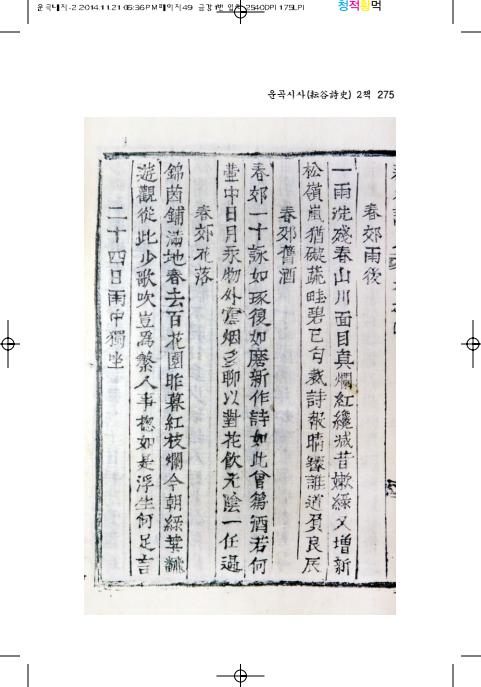 운곡내지-2 2014.11.21 06:36 PM 페이지49
2540DPI 175LPI
청적황먹
운곡시사(耘谷詩史) 2책 275
春郊雨後
一雨洗殘春山川面目真爛紅纔減昔嫩綠又增新
松嶺嵐猶礙蔬畦碧已勻裁詩報晴 誰道負良辰
春郊 酒
春郊一十詠如琢復如磨新作詩如此曾篘酒若何
壺中日月 物外 烟多聊以對花飮光陰一任過
春郊花落
錦茵鋪滿地春去百花園昨暮紅枝爛今朝綠葉飜
遊觀從此少歌吹豈爲繁人事摠如是浮生何足言
二十四日雨中獨坐